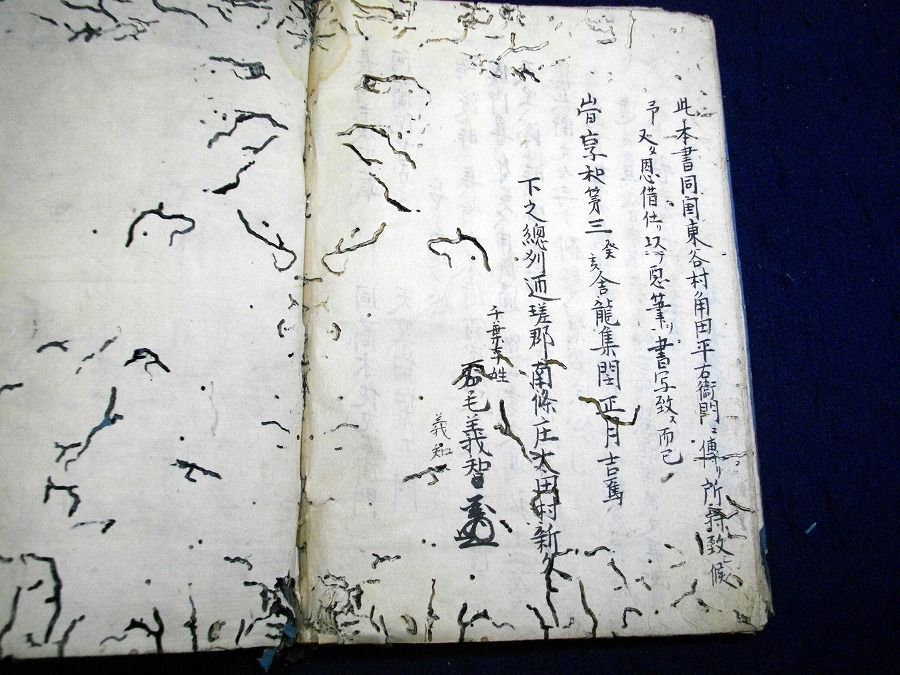 此本書同国東谷村角田平右衛門ニ傳リ所蔵致候
予又々恩借仕リ以テ悪筆ヲ書写致ス而已
旹享和第三癸亥舎龍集閏正月吉蔦
下之總列迊瑳郡南條庄太田村新久
千葉平姓
毛義智
義知